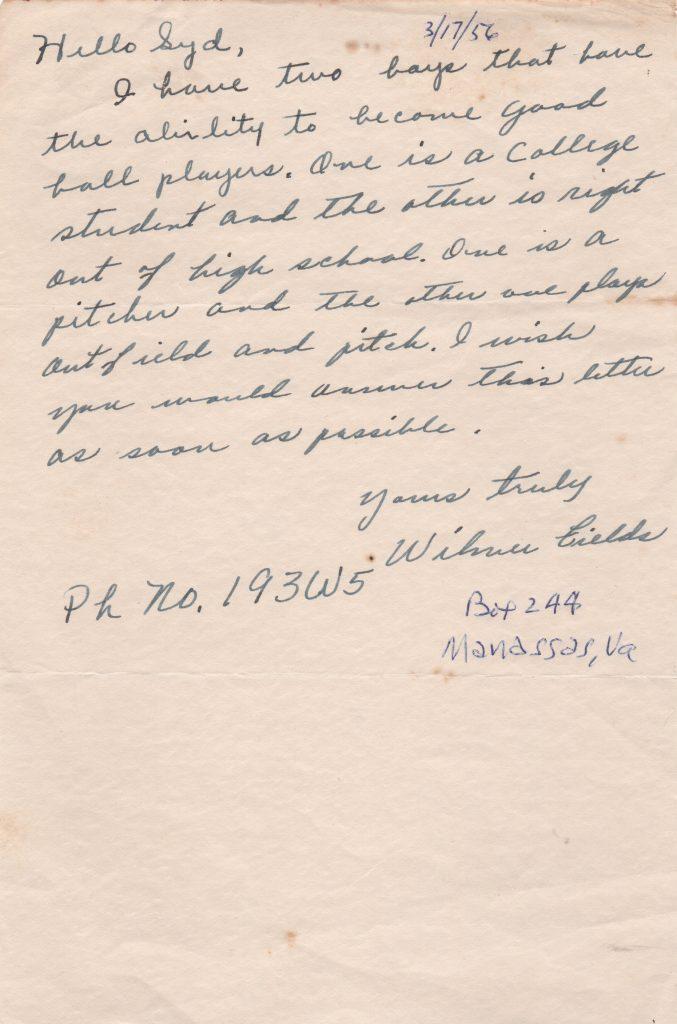 3/17/56
Hello Syd,
I have two boys that have
the abirlity to become good
ball players. One is a College
student and the other is right
out of high school. One is a
pitcher and the other one plays
outfield and pitch. I wish
you would answer this letter
as soon as possible.
Yours truly
Wilmer Fields
Ph No. 193W5
Box 244
Manassas, Va